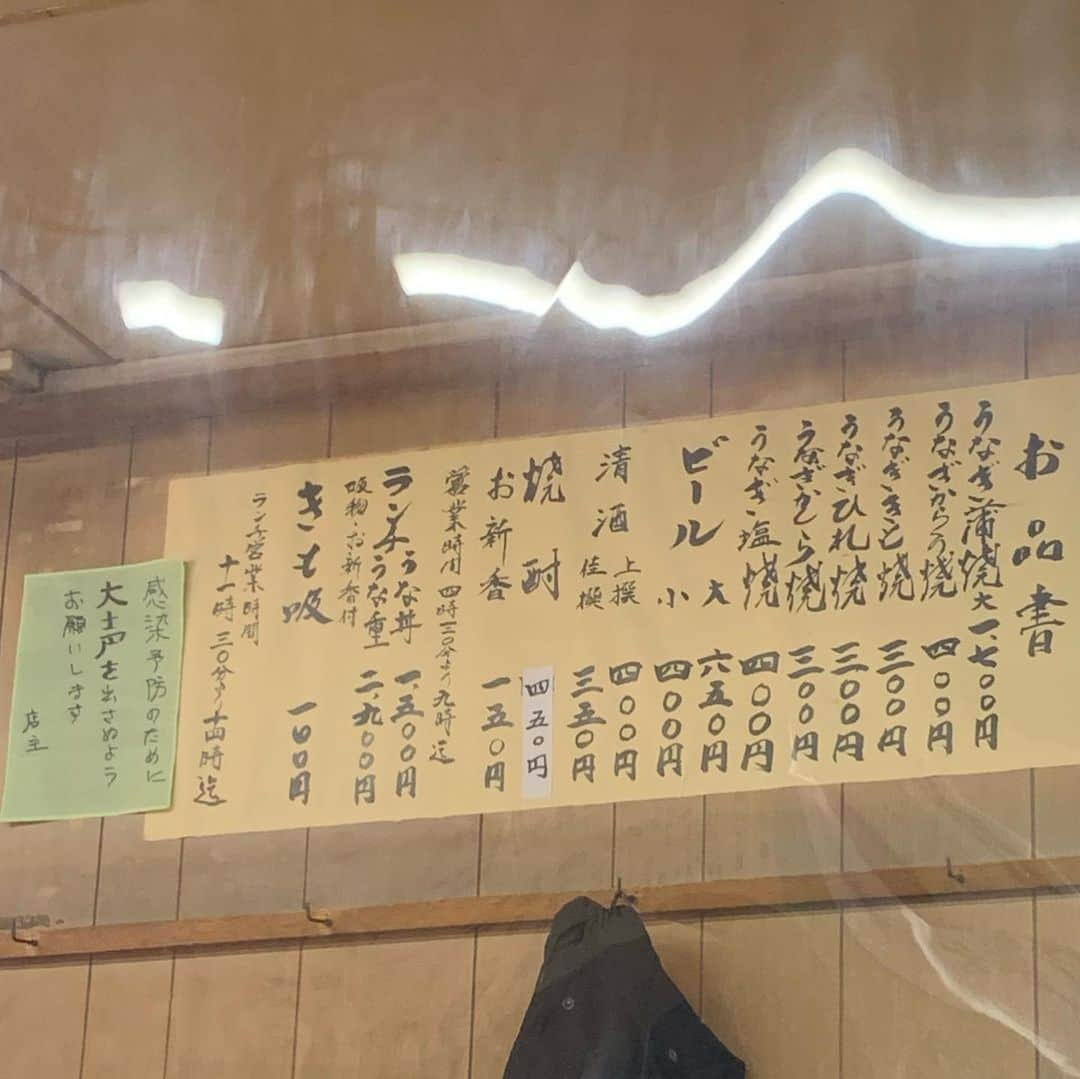 お品書
うなぎ蒲焼大 一、七〇〇円
うなぎからの焼 四〇〇円
うなぎきも焼 三〇〇円
うなぎひれ焼 三〇〇円
うなぎかしら焼 三〇〇円
うなぎ塩焼 四〇〇円
ビール 大 六五〇円
小 四〇〇円
清酒 上撰 四〇〇円
佳撰 三五〇円
焼酎 四五〇円
お新香 一五〇円
営業時間 四時三〇分より九時迄
ランチうな丼 一、五〇〇円
うな重 二、九〇〇円
吸物・お新香付
きも吸 一〇〇円
ランチ営業時間
十一時三〇分より十四時迄
感染予防のために
大声を出さぬよう
お願いします
店主